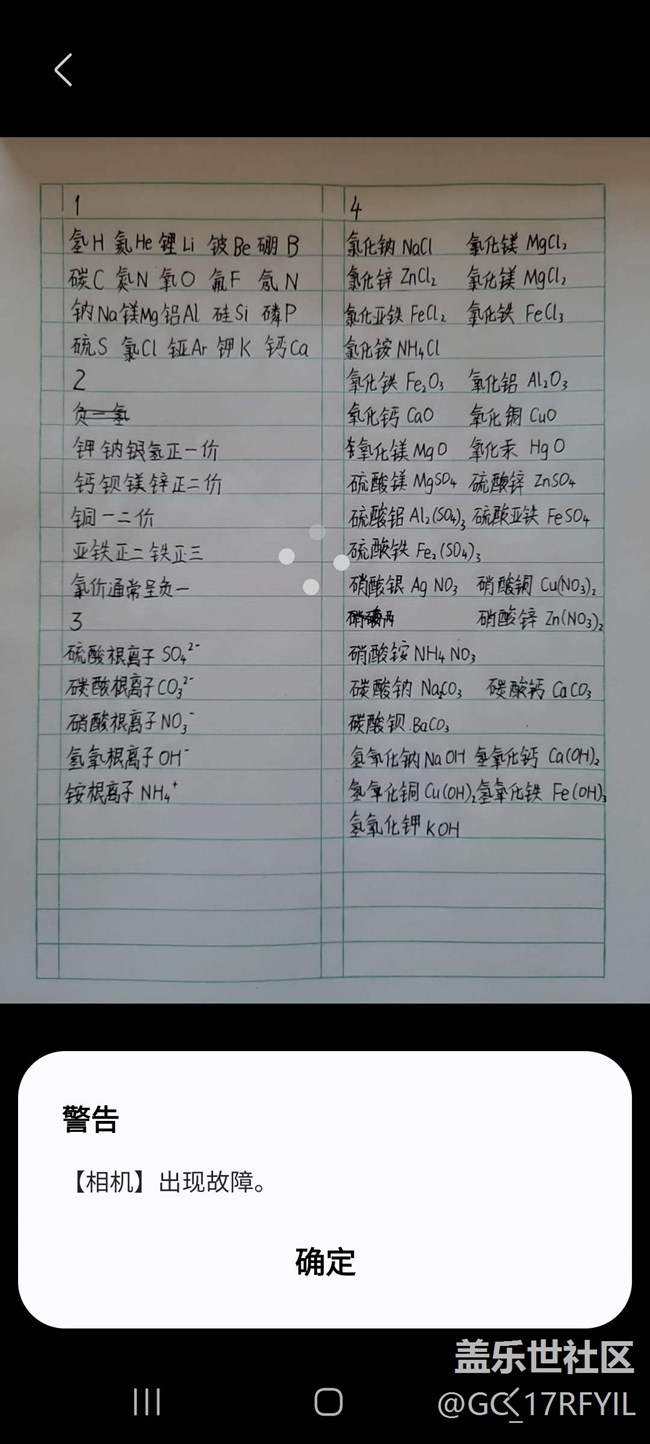 1
氢H 氦He 锂Li 铍Be 硼B
碳C 氮N 氧O 氟F 氖N
钠Na 镁Mg 铝Al 硅Si 磷P
硫S 氯Cl Ar 钾K 钙Ca
2
负一氢
钾钠银氢正一价
钙钡镁锌正二价
铜一二价
亚铁正二铁正三
氯价通常呈负一
3
硫酸根离子 SO₄²⁻
碳酸根离子 CO₃²⁻
硝酸根离子 NO₃⁻
氢氧根离子 OH⁻
铵根离子 NH₄⁺
4
氯化钠 NaCl 氯化镁 MgCl₂
氯化锌 ZnCl₂ 氯化镁 MgCl₂
氯化亚铁 FeCl₂ 氯化铁 FeCl₃
氯化铵 NH₄Cl
氧化铁 Fe₂O₃ 氧化铝 Al₂O₃
氧化钙 CaO 氧化铜 CuO
氧化镁 MgO 氧化汞 HgO
硫酸镁 MgSO₄ 硫酸锌 ZnSO₄
硫酸铝 Al₂(SO₄)₃ 硫酸亚铁 FeSO₄
硫酸铁 Fe₂(SO₄)₃
硝酸银 AgNO₃ 硝酸铜 Cu(NO₃)₂
硝酸锌 Zn(NO₃)₂
硝酸铵 NH₄NO₃
碳酸钠 Na₂CO₃ 碳酸钙 CaCO₃
碳酸钡 BaCO₃
氢氧化钠 NaOH 氢氧化钙 Ca(OH)₂
氢氧化铜 Cu(OH)₂ 氢氧化铁 Fe(OH)₃
氢氧化钾 KOH
警告
【相机】出现故障。
确定
盖乐世社区
@GC_17RFYIL